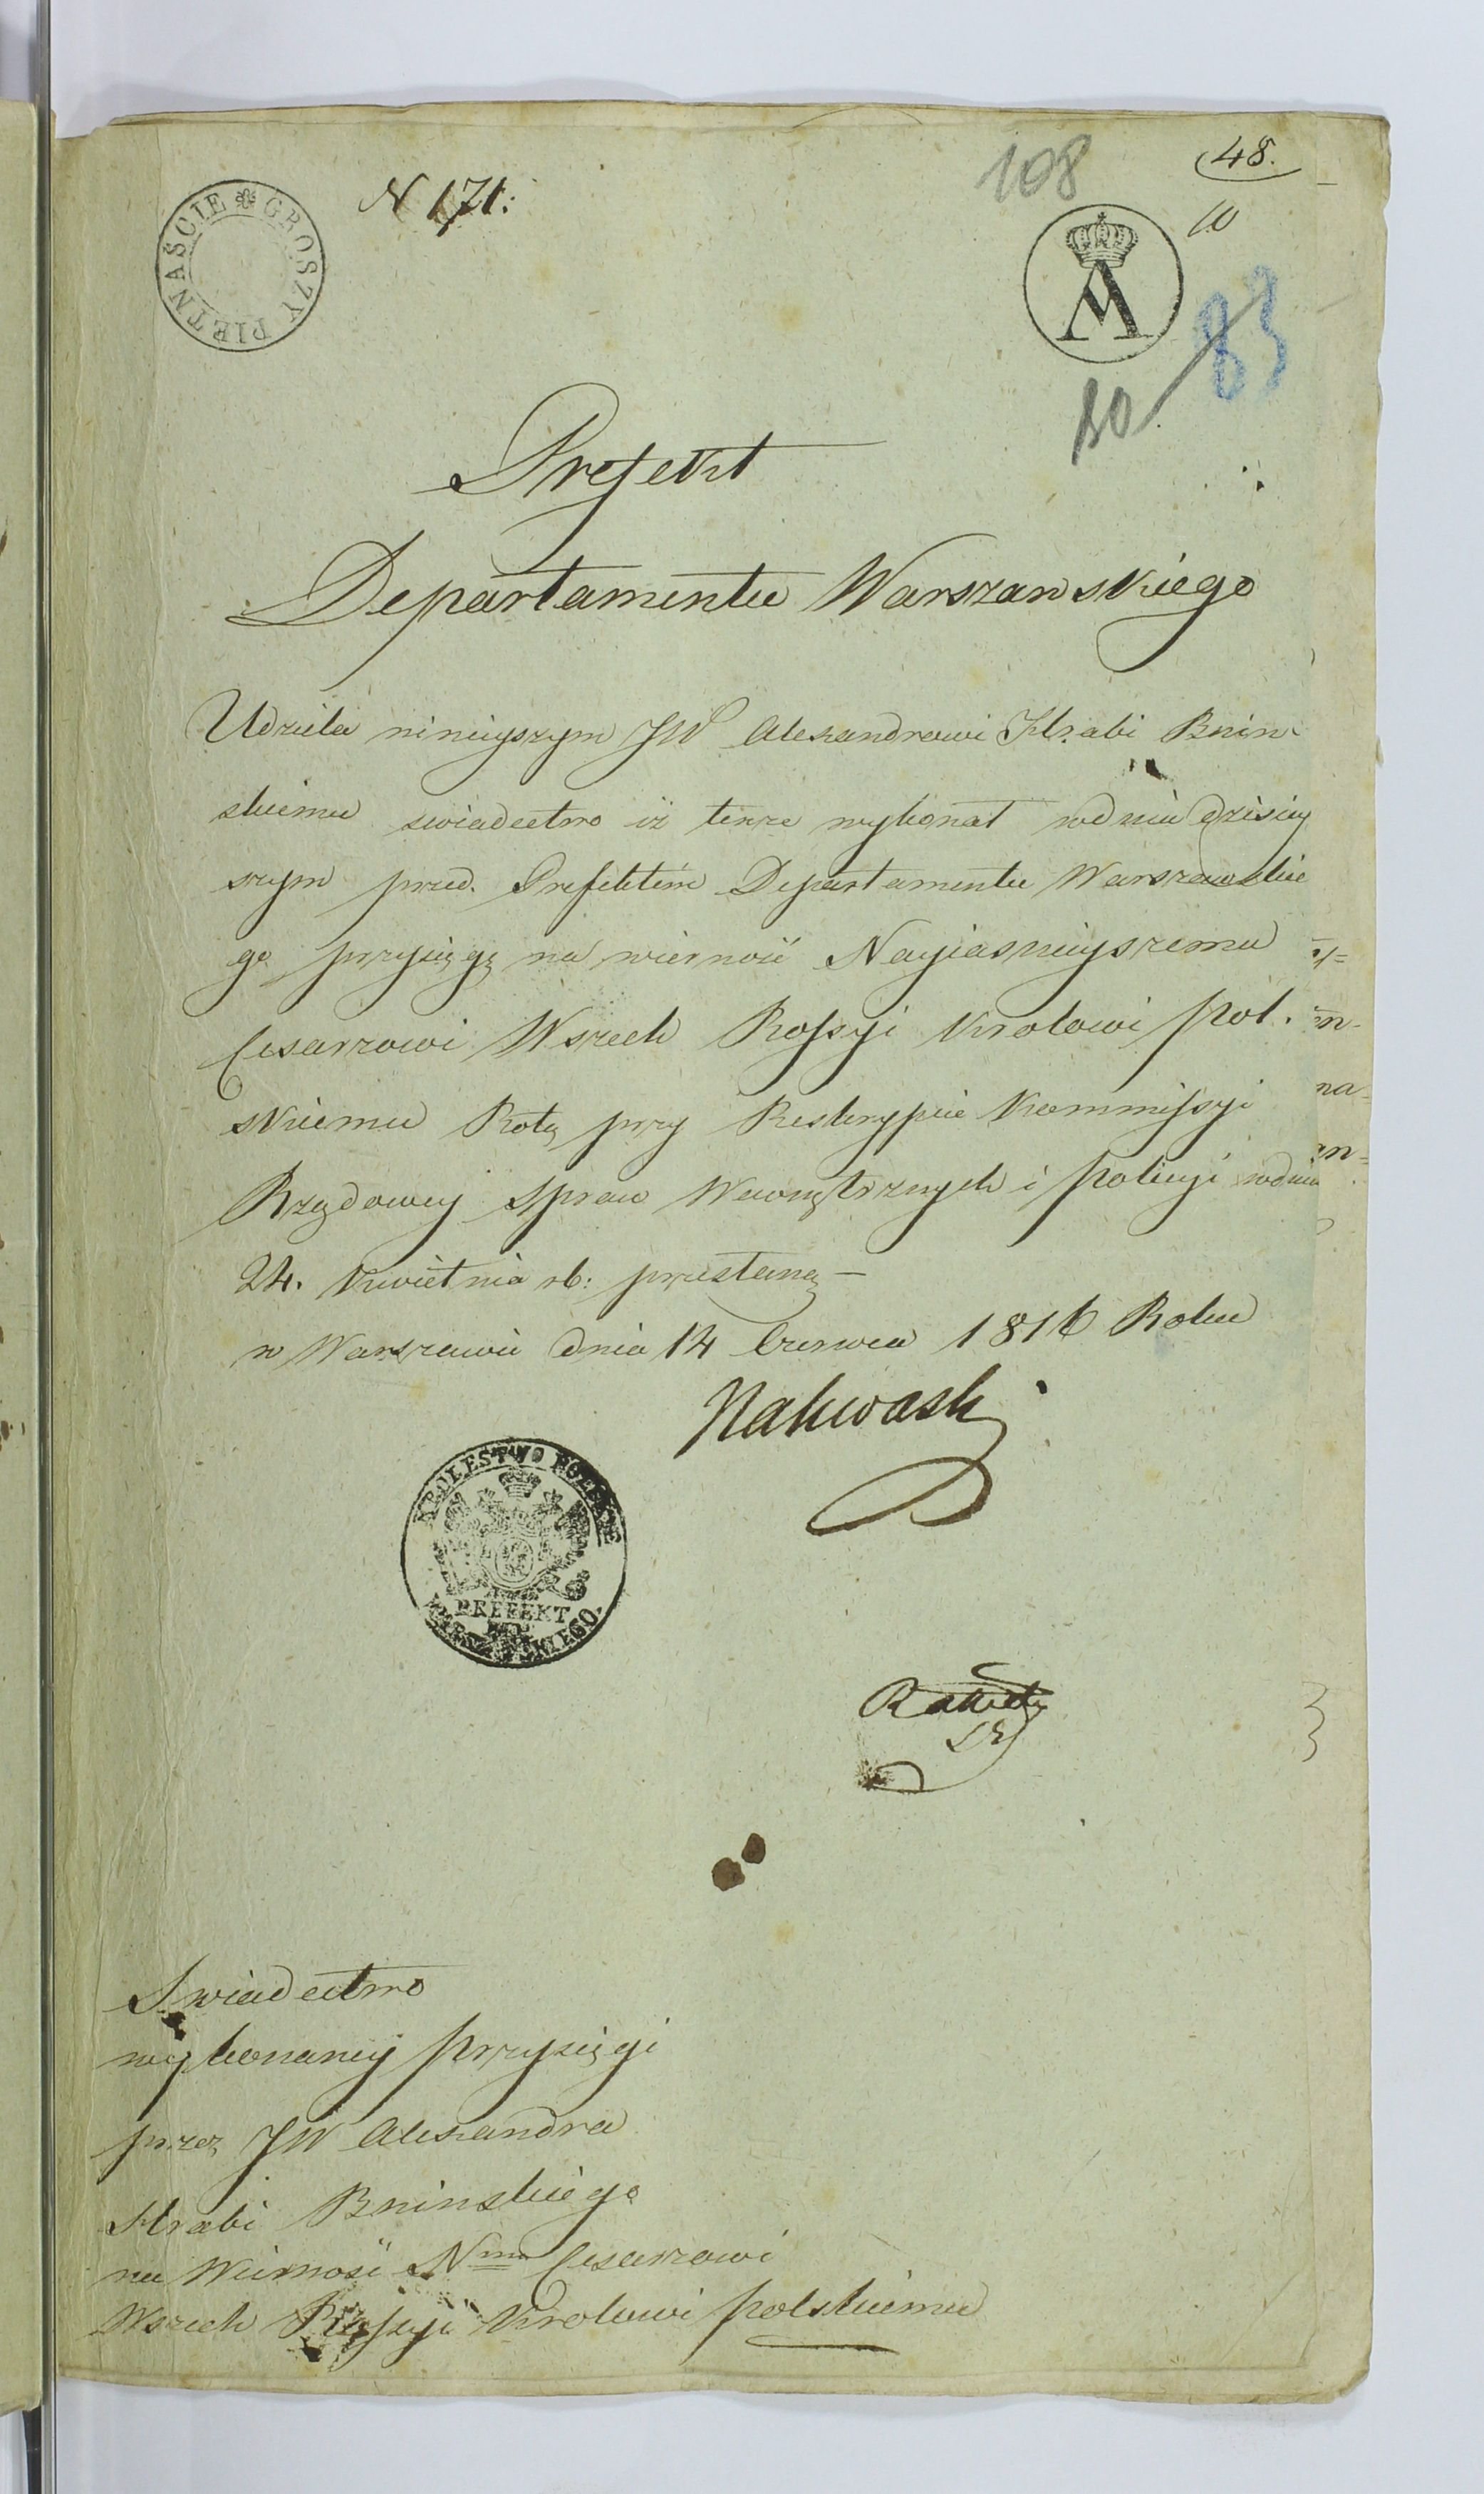 108
48.
N 171:
GROSZY PIETNAŚCIE
10
A
83
80
Prefekt
Departamentu Warszawskiego
Udziela ninieyszym JW Alexandrowi Hrabi Bnin-
skiemu swiadectwo iż tenże wykonał w dniu dzisiey
szym przed. Prefektem Departamentu Warszawskie
go przysięgę na wierność Nayiasnieyszemu
Cesarzowi Wszech Rossyi Krolowi Pol.
skiemu Rotą przy Reskrypcie Kommissyi
Rządowey Spraw Wewnętrznych i Policyi w dniu
24. Kwietnia rb: przesłaną —
w Warszawie dnia 14 Czerwca 1816 Roku
Nakwaski
KROLESTWO POLSKIE
PREFEKT
WARSZAWSKIEGO
Swiadectwo
wykonaney Przysięgi
przez JW Alexandra
Hrabi Bninskiego
na Wierność Nmu Cesarzowi
Wszech Rossyi Krolowi Polskiemu